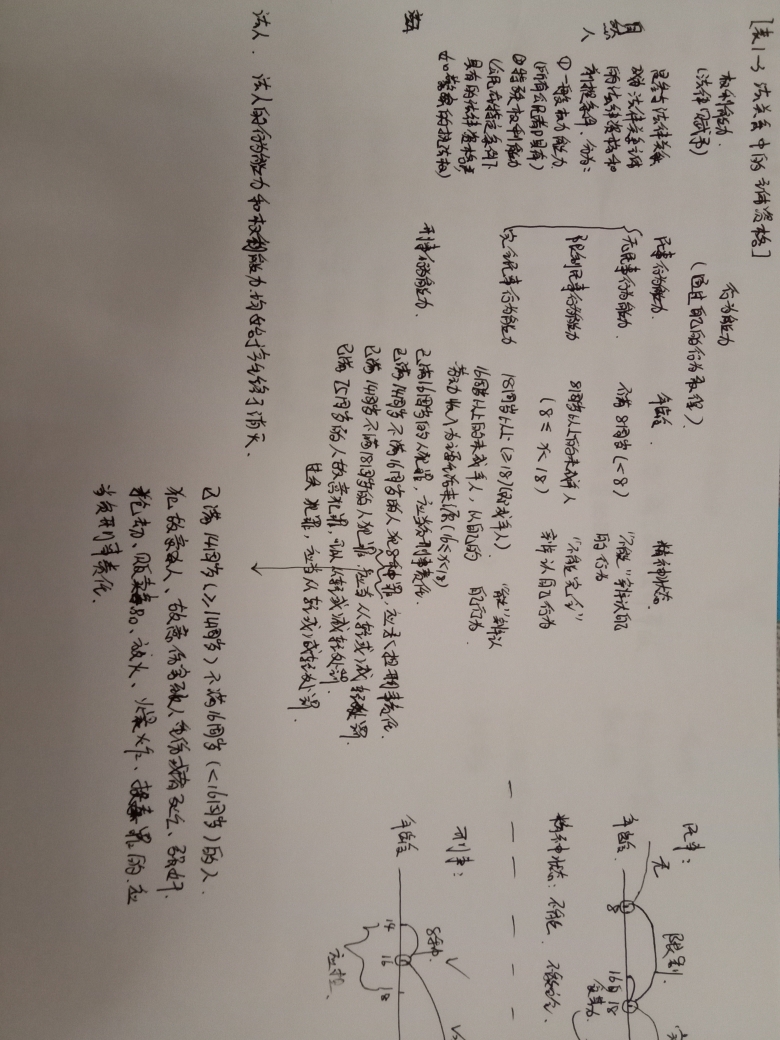 [表1-3 法关系中的主体资格]
权利能力.
(法律赋予)
行为能力
(通过自己的行为取得)
自然人
是参与法律关系
取得法律资格和
前提条件. 分为:
① 一般权利能力
(所有公民都具有)
② 特殊权利能力
(公民在特定条件下
具有的法律资格,
如警察的执法权)
民事行为能力. 年龄. 精神状态.
无民事行为能力. 不满8周岁(<8) "不能"辨认自己的行为
限制民事行为能力 8周岁以上的未成年人 "不能完全"辨认自己行为
(8≤X<18)
完全民事行为能力 18周岁以上(≥18)(成年人). "能"辨认自己行为.
16周岁以上的未成年人, 以自己的
劳动收入为主要生活来源(16≤X<18)
刑事行为能力. 已满16周岁的人犯罪, 应当负刑事责任.
已满14周岁不满16周岁的人犯8种罪, 应当承担刑事责任.
已满14周岁不满18周岁的人犯罪. 应当从轻(或)减轻处罚.
已满75周岁的人故意犯罪, 可以从轻(或)减轻处罚.
过失犯罪, 应当从轻(或)减轻处罚.
法人. 法人的行为能力和权利能力均始于产生终于消灭.
已满14周岁(≥14周岁)不满16周岁(<16周岁)的人.
犯故意杀人、故意伤害致人重伤或者死亡、强奸.
抢劫、贩卖毒品、放火、爆炸、投毒罪的. 应
当负刑事责任.
民事:
年龄. 无 8 限制. 16 18
精神状态: 不能. 不能完全.
刑事:
年龄 14 16 18
8种. ✓
应担.